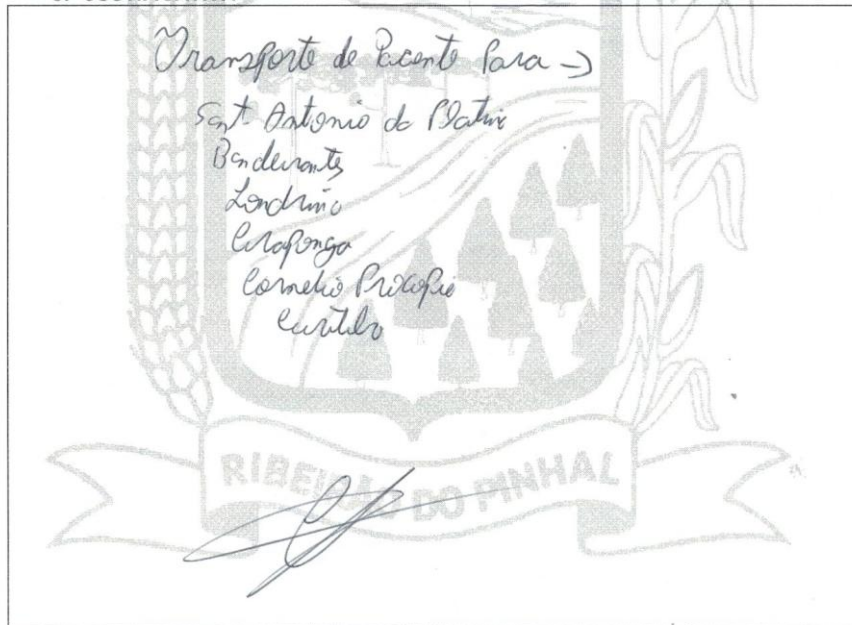 Transporte de Pacente Para →
Sant. Antonio da Platin
Bandeirantes
Londrina
Araponga
Cornelio Procopio
Curitiba
RIBEIRÃO DO PINHAL